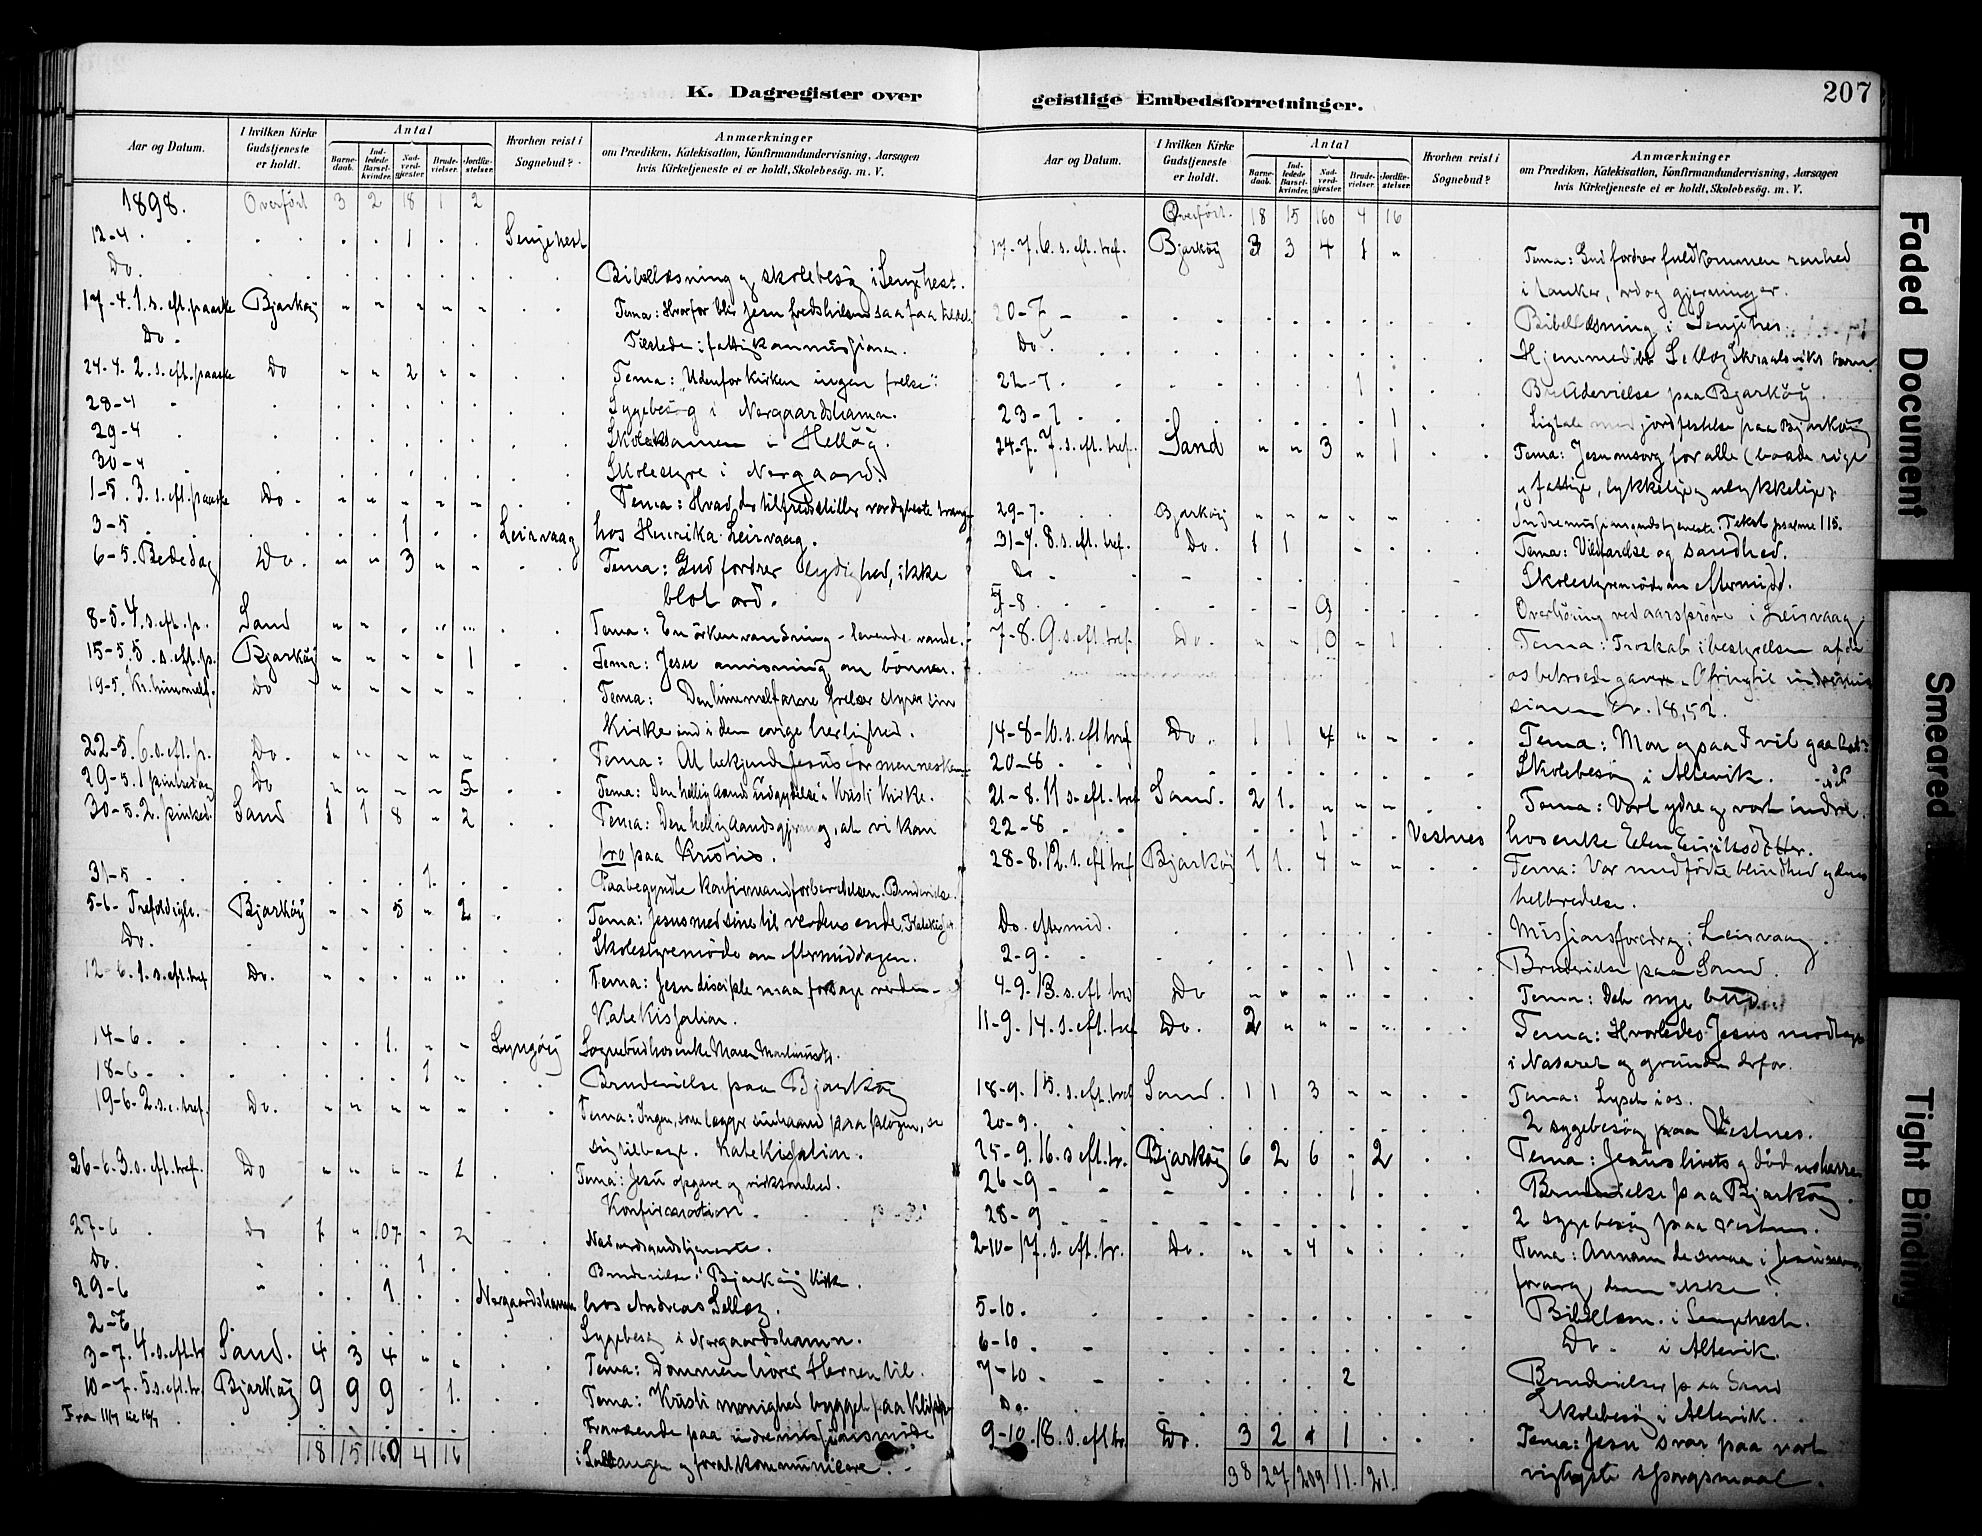 K. Dagregister over
Aar og Datum.
I hvilken Kirke Gudstjeneste er holdt.
Antal
Barne-daab.
Ind-ledede Barsel-kvinder.
Nad-verd-gjester.
Brude-vielser.
Jordfæ-stelser.
Hvorhen reist i Sognebud?
Anmærkninger
om Prædiken, Katekisation, Konfirmandundervisning, Aarsagen
hvis Kirketjeneste ei er holdt, Skolebesög. m. V.
1898. Overført 3 2 18 1 2
12-4 1 Senjehest
Do. Bibellæsning og skolebesøg i Senjehest.
17-4. 1. s. eft. paaske Bjarkøy Tema: Hvorfor blir Jesu
Do. Tilstede i fattigkommissionen.
24-4. 2. s. eft. paaske Do 2 Tema: "Udenfor kirken ingen frelse".
28-4 Sygebesøg i Nergaardshamn.
29-4 Skoleeksamen i Helløy.
30-4 Skolestyre i Nergaard.
1-5. 3. s. eft. paaske Do. Tema: Hvad der tilfredsstiller vor dybeste trang
3-5 1 Leirvaag hos Henrika Leirvaag.
6-5. Bededag Do. 3 Tema: Gud fordrer lydighed, ikke
blot ord.
8-5. 4. s. eft. p. Sand Tema: En ørkenvandring - levende vande.
15-5. 5. s. eft. p. Bjarkøy 1 Tema: Jesu anvisning om bønnen.
19-5. Kr. himmelf. Do Tema: Den himmelfarne frelser styrer sin
Kirke ind i den evige herlighed.
22-5. 6. s. eft. p. Do. Tema: At bekjende Jesus for menneskene
29-5. 1 pinsedag Do 5 Tema: Den hellig aands udgydelse i Kristi Kirke.
30-5. 2. pinsed. Sand 1 1 8 2 Tema: Den hellig aandsgjerning, at vi kan
tro paa Kristus.
31-5 1. Paabegyndte konfirmandforberedelsen. Brudevielse.
5-6. Trefoldigh. Bjarkøy 5 2 Tema: Jesus med sine til verdens ende.
Do. Skolestyremøde om eftermiddagen.
12-6. 1. s. eft. tref Do. Tema: Jesu disciple maa forsage verden -
Katekisation.
14-6. 1. Lyngøy Sognebud hos enke Maren
18-6 1 Brudevielse paa Bjarkøy
19-6. 2. s. e. tref. Do. Tema: Ingen, som lægger sin haand paa plogen, ser
sig tilbage. Katekisation.
26-6. 3. s. eft. tref. Do 1 Tema: Jesu opgave og virksomhed.
Konfirmation.
27-6 Do 1 107 2 Nadverdgudstjeneste.
Do. 1 Brudevielse i Bjarkøy Kirke.
29-6 1 Nergaardshamn hos Andreas
2-7 Sygebesøg i Nergaardshamn.
3-7. 4. s. eft. tr Sand. 4 3 4 Tema: Dommen hører Herren til.
10-7. 5. s. eft. tr. Bjarkøy 9 9 9 1. Tema: Kristi menighed bygget paa
Fra 11/7 til 16/7 Fraværende paa indremissionsmøde
18 15 160 4 16
geistlige Embedsforretninger.
207
Aar og Datum.
I hvilken Kirke Gudstjeneste er holdt.
Antal
Barne-daab.
Ind-ledede Barsel-kvinder.
Nad-verd-gjester.
Brude-vielser.
Jordfæ-stelser.
Hvorhen reist i Sognebud?
Anmærkninger
om Prædiken, Katekisation, Konfirmandundervisning, Aarsagen
hvis Kirketjeneste ei er holdt, Skolebesög. m. V.
Overført. 18 15 160 4 16
17-7. 6. s. eft. tref. Bjarkøy 3 3 4 1 Tema: Gud fordrer fuldkommen renhed
i tanker, ord og gjerninger.
20-7 Bibellæsning i Senjehest
Do. Hjemmedøbt barn
22-7 1 Brudevielse paa Bjarkøy.
23-7 1 Ligtale med jordfestelse paa Bjarkøy
24-7. 7. s. eft. tref. Sand 3 1 Tema: Jesu omsorg for alle (baade rige
og fattige, lykkelige og ulykkelige).
29-7. Bjarkøy Indremissionsgudstjeneste. Tekst psalme 115.
31-7. 8. s. eft. tref. Do. 1 1 Tema: Vildfarelse og sandhed.
Do Skolestyremøde om eftermidd.
5-8. 9 Overhøring ved aarsprøve i Leirvaag
7-8. 9. s. eft. tref. Do. 10 1 Tema: Troskab i bestyrelsen af de
os betroede gaver. Ofring til indremis
sionen kr. 18,52.
14-8-10. s. eft tref Do. 1 1 4 Tema: Mon ogsaa I vil gaa bort?
20-8 Skolebesøg i Altevik.
21-8. 11 s. eft. tref Sand. 2 1. Tema: Vort ydre og vort indre.
22-8 1 Vestnes hos enke Elen Eriksdotter.
28-8. 12. s. eft tref Bjarkøy 1 1. 4 Tema: Vor medfødte blindhed og dens
helbredelse.
Do. eftermid. Missionsforedrag i Leirvaag.
2-9. 1 Brudevielse paa Sand.
4-9. 13. s. eft tref Do Tema: Det nye bud.
11-9. 14. s. eft. tref Do. 2 Tema: Hvorledes Jesus modtages
i Nasaret og grunden derfor.
18-9. 15. s. eft. tref Sand. 1 1 3 Tema: Lyset i os.
20-9. 2 sygebesøg paa Vestnes.
25-9. 16. s eft. tr. Bjarkøy 6 2 6 2 Tema: Jesus livets og dødens herre
26-9 1 Brudevielse paa Bjarkøy.
28-9 2 sygebesøg paa Vestnes.
2-10-17. s. eft. tr. Do. 4 Tema: Annam de smaa i Jesu navn,
forarg dem ikke".
5-10. Bibellæsn. i Senjehesth.
6-10 Do. i Altevik.
7-10 2 Brudevielser paa Sand
Do. Skolebesøg i Altevik.
9-10. 18. s. eft tr. Do. 3 2 4 1 Tema: Jesu svar paa vort
vigtigste spørgsmaal.
38 27 209 11. 21.
Faded Document
Smeared
Tight Binding